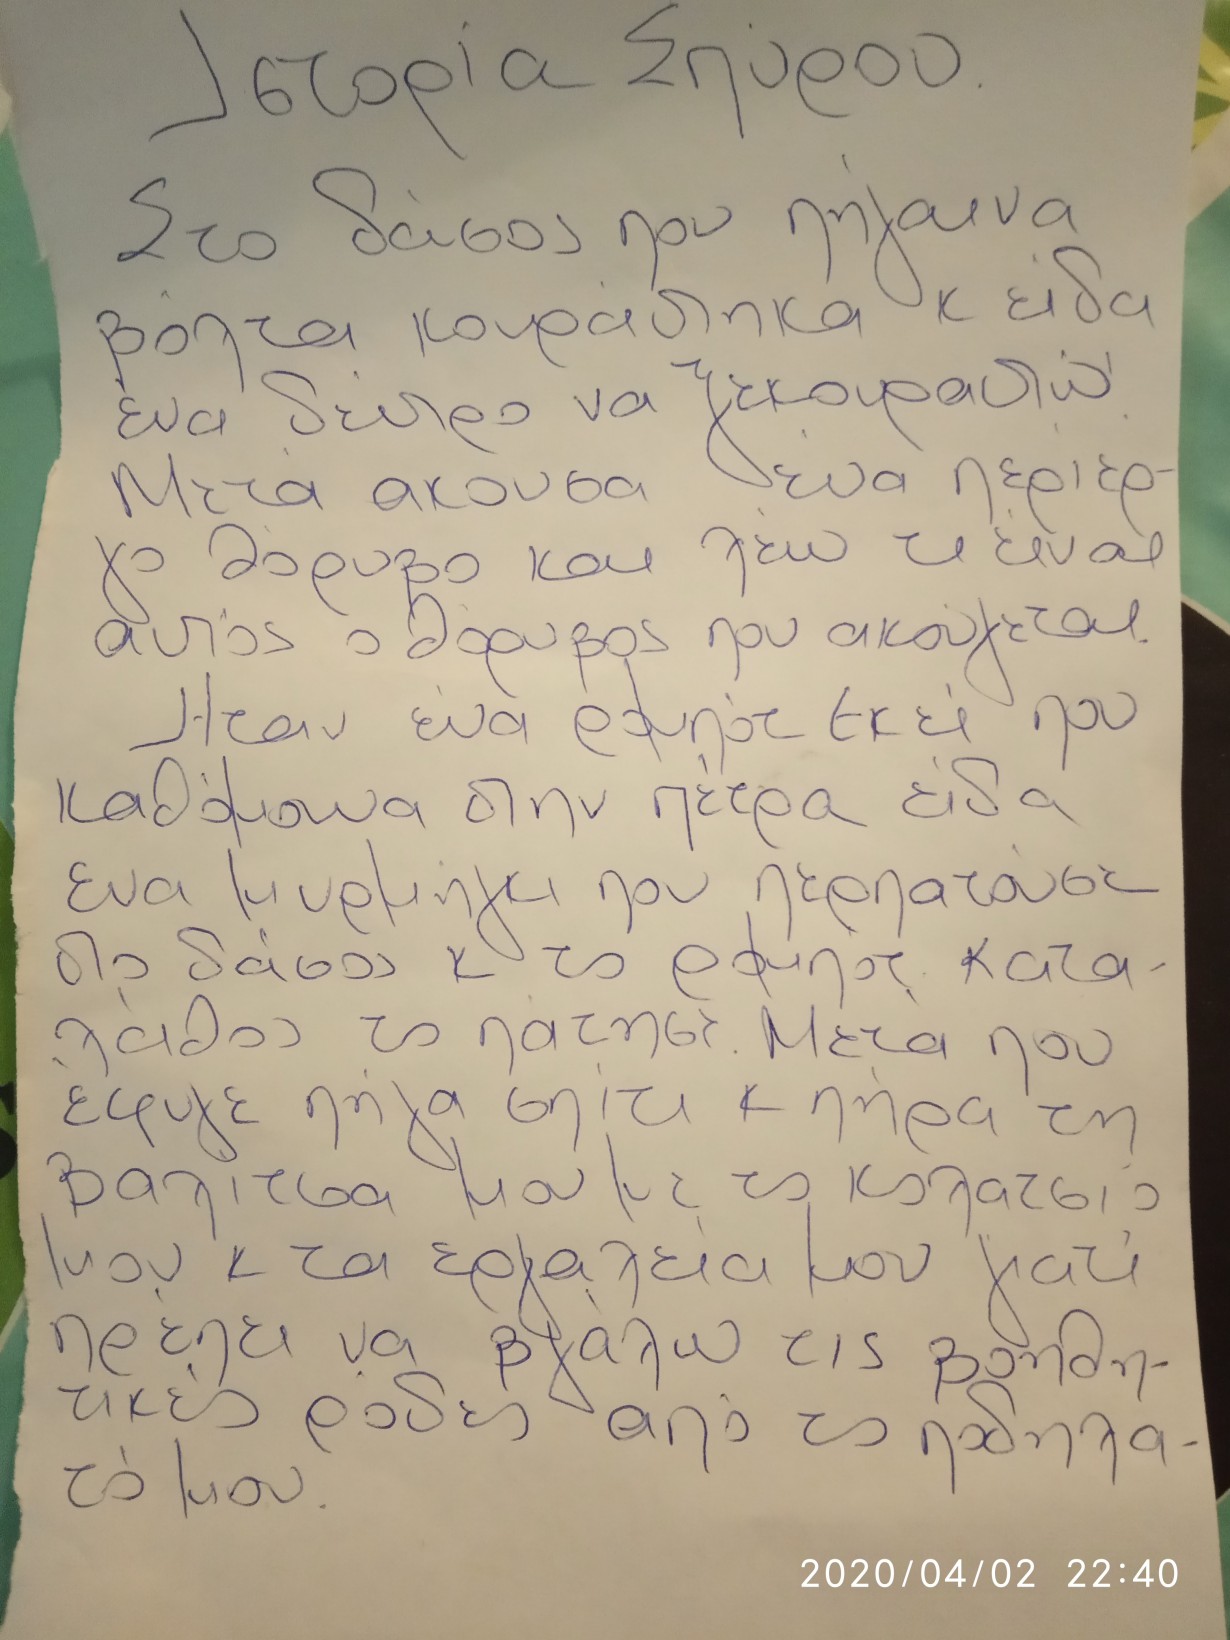 Ιστορία Σπύρου.
Στο δάσος που πήγαινα
βόλτα κουράστηκα κ είδα
ένα δέντρο να ξεκουραστώ.
Μετά ακουσα ένα περίερ-
γο θόρυβο και λέω τι είναι
αυτός ο θόρυβος που ακούγεται.
Ηταν ένα ρομπότ Εκεί που
καθόμουνα στην πέτρα είδα
ενα μυρμήγκι που περπατούσε
στο δάσος κ το ρομπότ κατα-
λάθος το πάτησε. Μετά που
έφυγε πήγα σπίτι κ πήρα τη
βαλίτσα μου με το κολατσιό
μου κ τα εργαλεία μου γιατί
πρέπει να βγάλω τις βοηθη-
τικές ρόδες από το ποδηλα-
τό μου.
2020/04/02 22:40